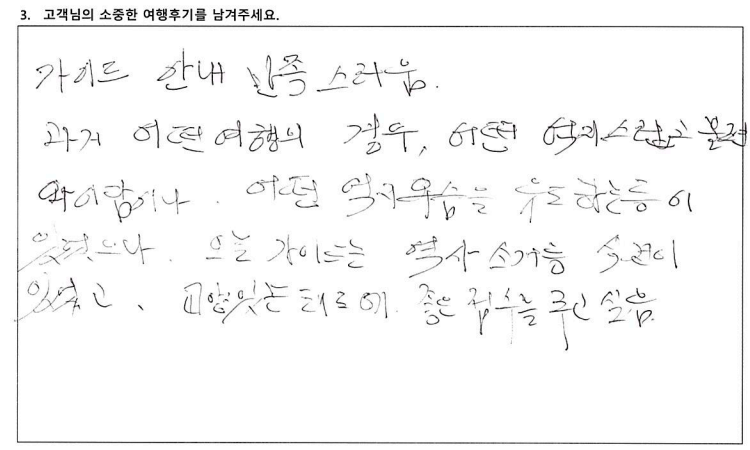 3. 고객님의 소중한 여행후기를 남겨주세요.
가이드 안내 만족스러움.
과거 어떤 여행의 경우, 어떤 억지스럽고
어떤 억지웃음을 유도하는등이
있었으나. 오늘 가이드는 역사 소개등
있었고, 교양있는 태도에. 좋은 점수를 주고 싶음.